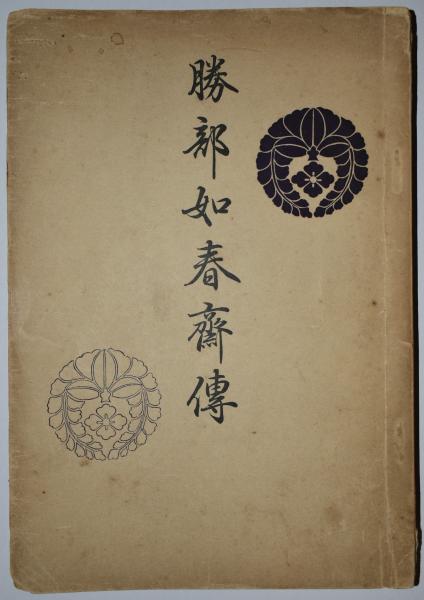 勝部如春齋傳